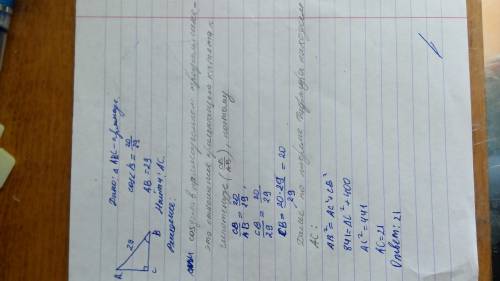 Дано: △ABC-прямоуг.
cos∠B = 20/29
AB = 29
Найти: AC.
Решение:
A
29
C
B
косинус в прямоугольном треугольнике-
это отношение прилежащего катета к
гипотенузе (CB/AB), поэтому
CB/AB = 20/29,
CB/29 = 20/29
CB = 20·29/29 = 20
Далее по теореме Пифагора находим
AC:
AB² = AC² + CB²
841 = AC² + 400
AC² = 441
AC = 21
Ответ: 21